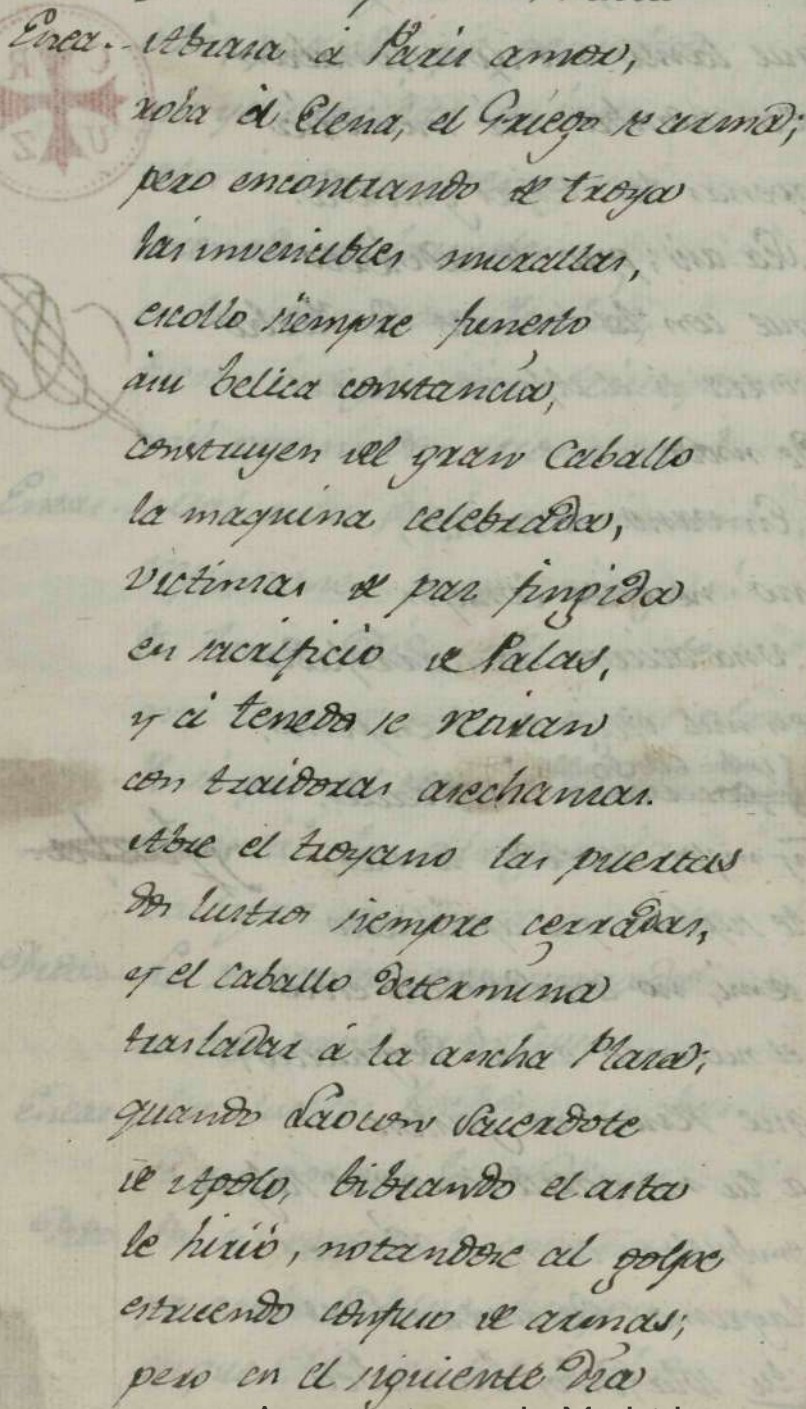 Enea. Abrasa á Paris amor,
roba á Elena, el Griego se arma;
pero encontrando de troya
las invencibles murallas,
escollo siempre funesto
á su belica constancia,
construyen del gran Caballo
la maquina celebrada,
victimas de paz fingida
en sacrificio de Palas,
y á tenedo se retiran
con traidoras asechanzas.
Abre el troyano las puertas
dos lustros siempre cerradas,
y el Caballo determina
trasladar á la ancha Plaza;
quando Laocon Sacerdote
de Apolo, bibrando el asta
le hirió, notandose al golpe
estruendo confuso de armas;
pero en el siguiente dia
CRUZ